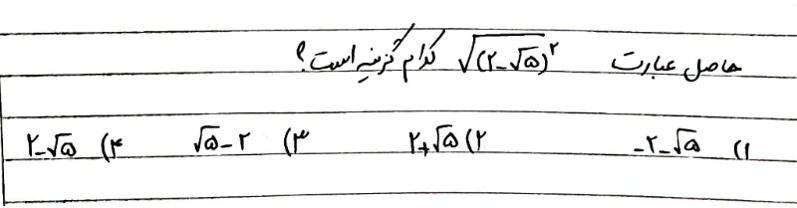 حاصل عبارت √(۲-√۵)² کدام گزینه است؟
۱) -۲-√۵ ۲) ۲+√۵ ۳) √۵-۲ ۴) ۲-√۵